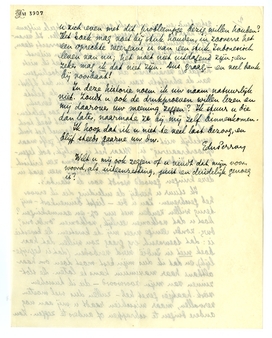 1937
u zich even met dit probleempje bezig willen houden?
Het boek mag nooit bij stuk houden, in zooverre het
een oprechte weergave is van een stuk
leven van mij. Het moet niet uitdagend zijn; en
zeker mag ik dat niet zijn. Dus graag — en veel dank
bij voorbaat!
In deze historie noem ik uw naam natuurlijk
niet. Zoudt u ook de drukproeven willen lezen en
mij daarover uw meening zeggen? Ik stuur u die
dan later, naarmate ze bij mij zelf binnenkomen.
Ik hoop dat ik u niet te veel last bezorg, en
blijf steeds gaarne uw
EduPerron
Wilt u mij ook zeggen of u vindt dat mijn voor-
woord, als uiteenzetting, juist en duidelijk genoeg
is?